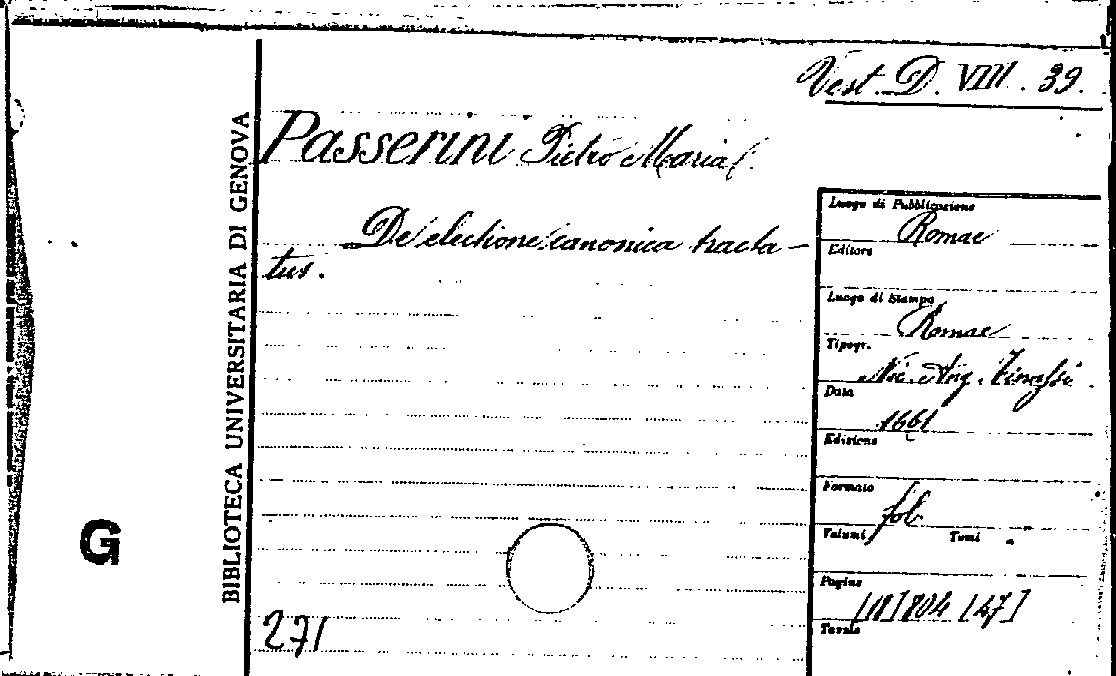 Vest. D. VIII. 39.
Passerini Pietro Maria
De electione canonica tracta-
tus.
BIBLIOTECA UNIVERSITARIA DI GENOVA
G
271
Luogo di Pubblicazione
Romae
Editore
Luogo di Stampa
Romae
Tipogr.
Nic. Ang. Tinassi
Data
1661
Edizione
Formato
fol.
Volumi Tomi
Pagine
[18] 804 [47]
Tavole